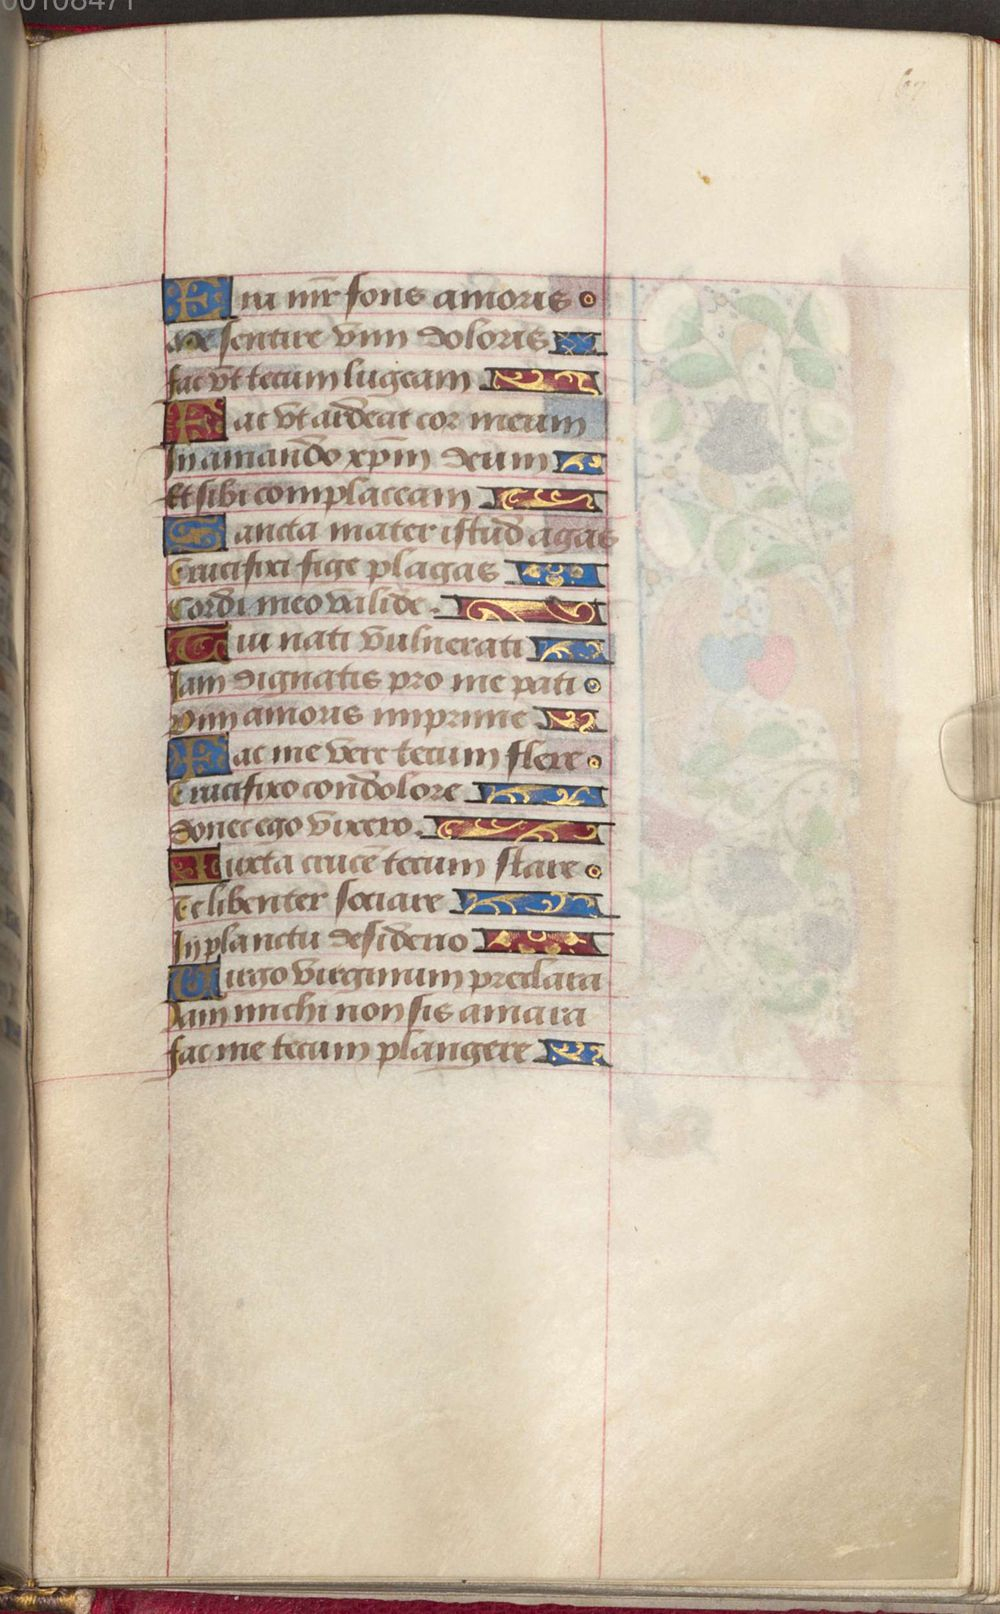 00108471
67
Eia mr̄ fons amoris
Me sentire vim doloris
fac vt tecum lugeam
Fac vt ardeat cor meum
In amando xp̄m deum
Et sibi complaceam
Sancta mater istud agas
Crucifixi fige plagas
Cordi meo valide.
Tui nati vulnerati
Jam dignatis pro me pati
vim amoris imprime
Fac me vere tecum flere
Crucifixo condolore
donec ego vixero.
Iuxta crucē tecum stare
Te libenter sociare
In planctu desiderio
Virgo virginum preclara
Jam michi non sis amara
fac me tecum plangere